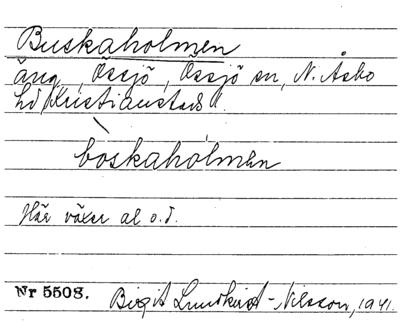 Buskaholmen
äng, Össjö, Össjö sn, N. Åsbo
hd Kristianstads l.
bòskahólmən
Här växer al o.d.
Nr 5508. Birgit Lundkvist-Nilsson, 1941.